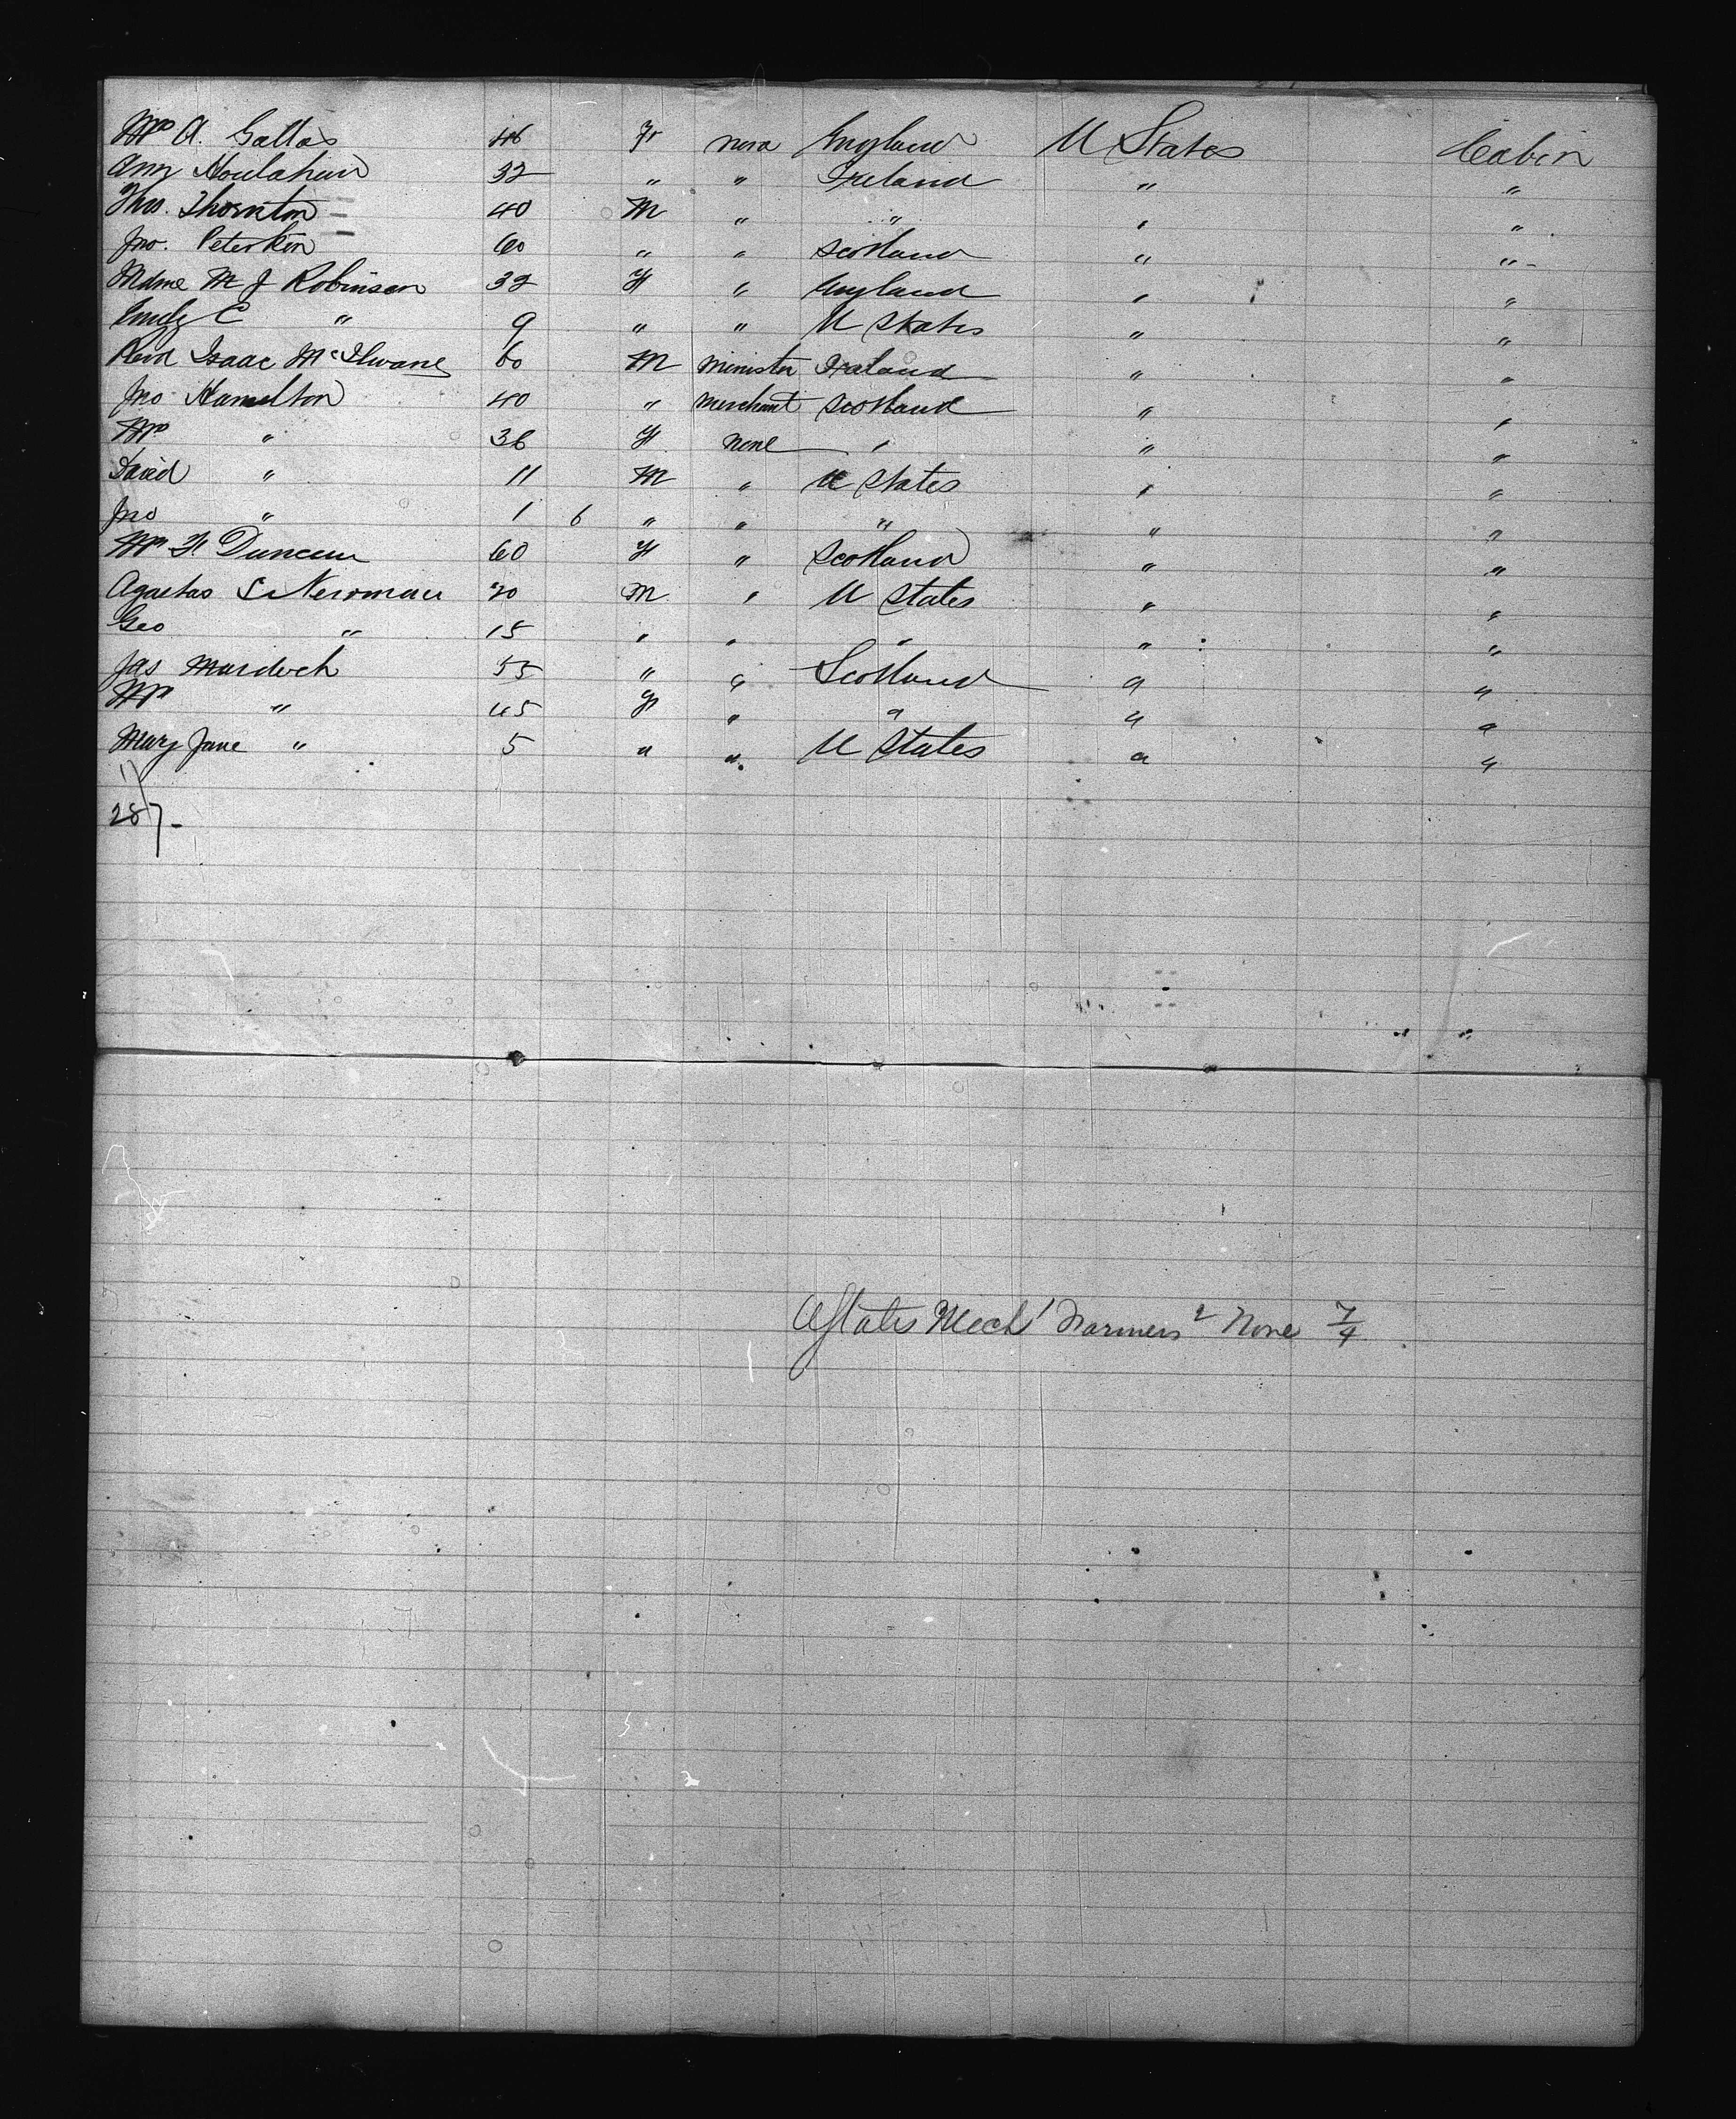 Mrs A. Gattas 46 F none England U States Cabin
Ann Houlahan 32 " " Ireland " "
Thos. Thornton 40 M " " " "
Jno. Peterkin 60 " " Scotland " "
Mdme M J Robinson 32 F " England " "
Emily C " 9 " " U States " "
Revd Isaac McIlwane 60 M minister Ireland " "
Jno Hamilton 40 " merchant Scotland " "
Mrs " 36 F none " " "
David " 11 M " U States " "
Jno " 1 6 " " " " "
Mrs F Duncan 60 F " Scotland " "
S Newman 20 M " U States " "
Geo " 15 " " " " "
Jas Murdoch 55 " " Scotland " "
Mrs " 45 F " " " "
Mary Jane " 5 " " U States " "
17
287-
U States Mech 1 Farmers 2 None 7/9